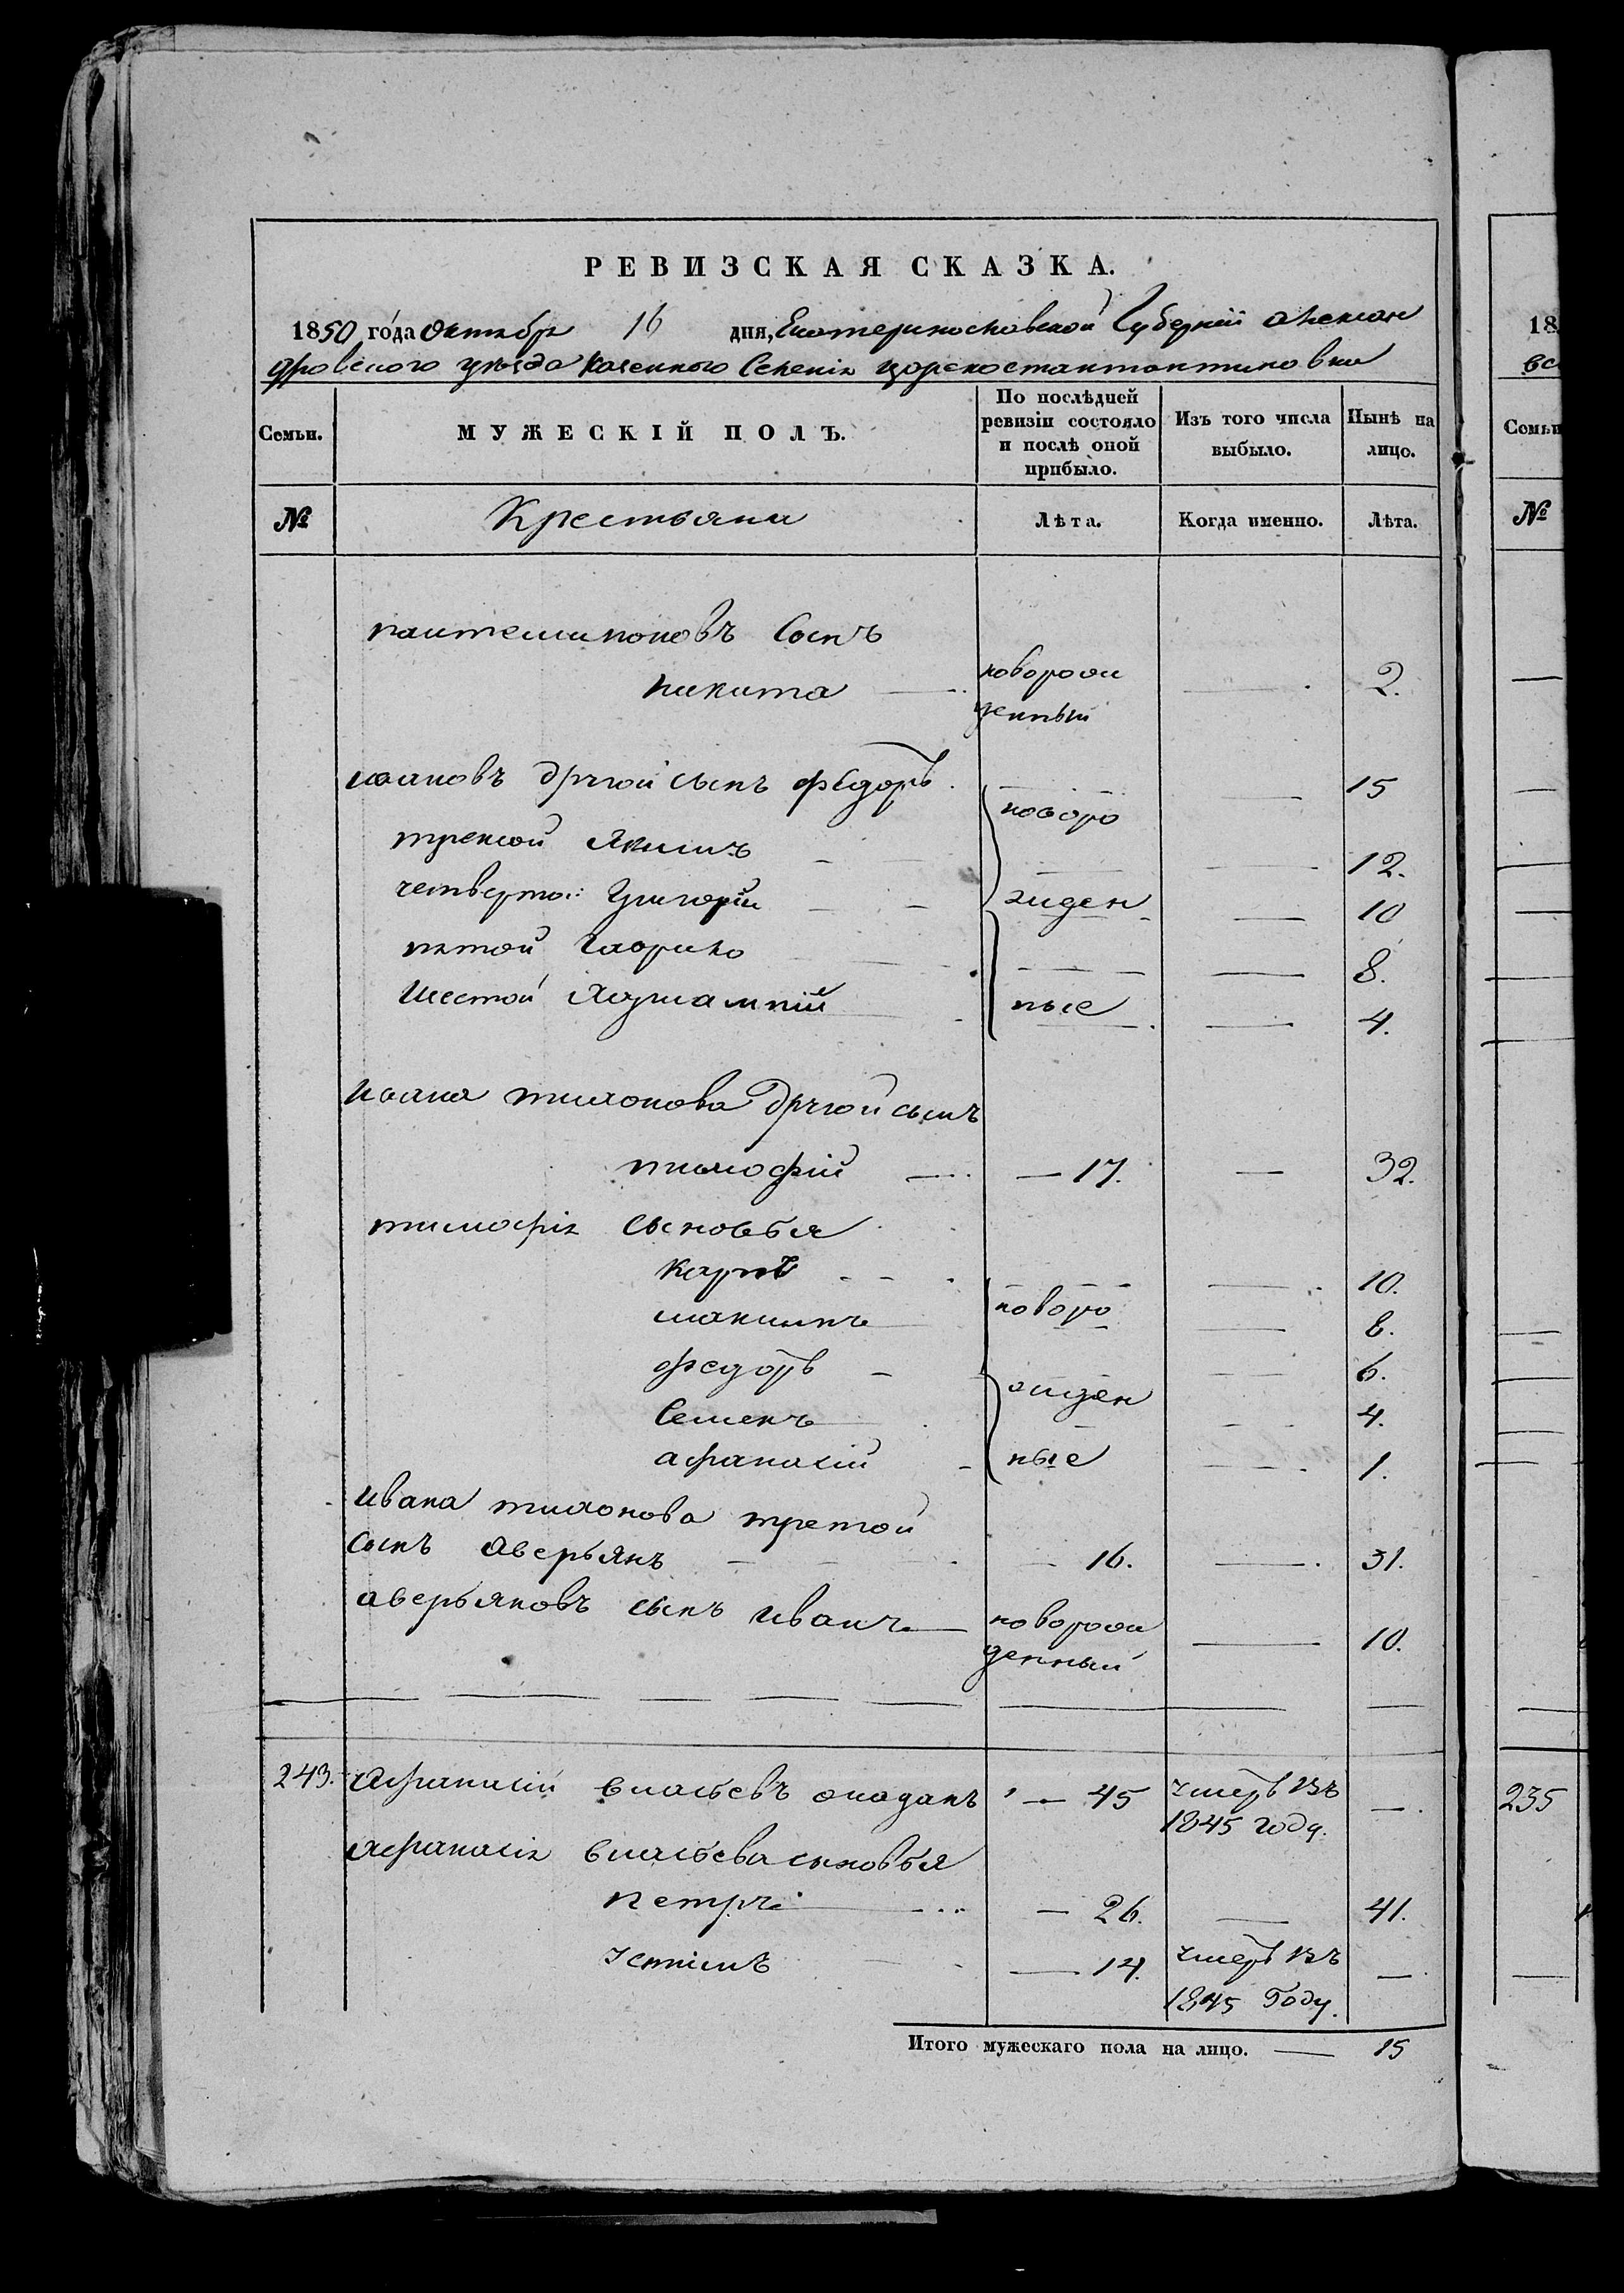 РЕВИЗСКАЯ СКАЗКА.
1850 года октября 16 дня, Екатеринославской Губерніи Алексан
дровского уезда казенного Селенія Царекостантантиновки
Семьи.
МУЖЕСКІЙ ПОЛЪ.
По послѣдней ревизіи состояло и послѣ оной прибыло.
Изъ того числа выбыло.
Нынѣ на лицо.
№ Крестьяна Лѣта. Когда именно. Лѣта.
пантелимоновъ Сынъ
никита новорож денный 2.
ивановъ другой сынъ федоръ 15
третой Якимъ 12.
четвертой Григорій 10
пятой Гаврило 8.
шестой Харлампій 4.
новоро жден ные
ивана тихонова другой сынъ
тимофій 17. 32.
тимофія сыновья
карпъ 10.
максимъ 8.
федоръ 6.
Семенъ 4.
афанасій 1.
новоро жден ные
ивана тихонова третой
сынъ аверьянъ 16. 31.
аверьяновъ сынъ иванъ новорож денный 10.
243. Афанасій власьевъ 45 умеръ въ 1845 году.
Афанасія власьева сыновья
петръ 26. 41.
устимъ 14. умеръ въ 1845 Году.
Итого мужескаго пола на лицо. 15
18
вс
Семьи
№
235